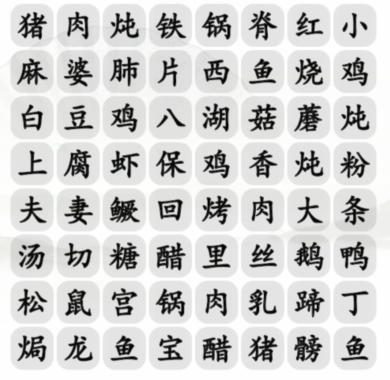 猪肉炖铁锅脊红小
麻婆肺片西鱼烧鸡
白豆鸡八湖菇蘑炖
上腐虾保鸡香炖粉
夫妻鳜回烤肉大条
汤切糖醋里丝鹅鸭
松鼠宫锅肉乳蹄丁
焗龙鱼宝醋猪髈鱼